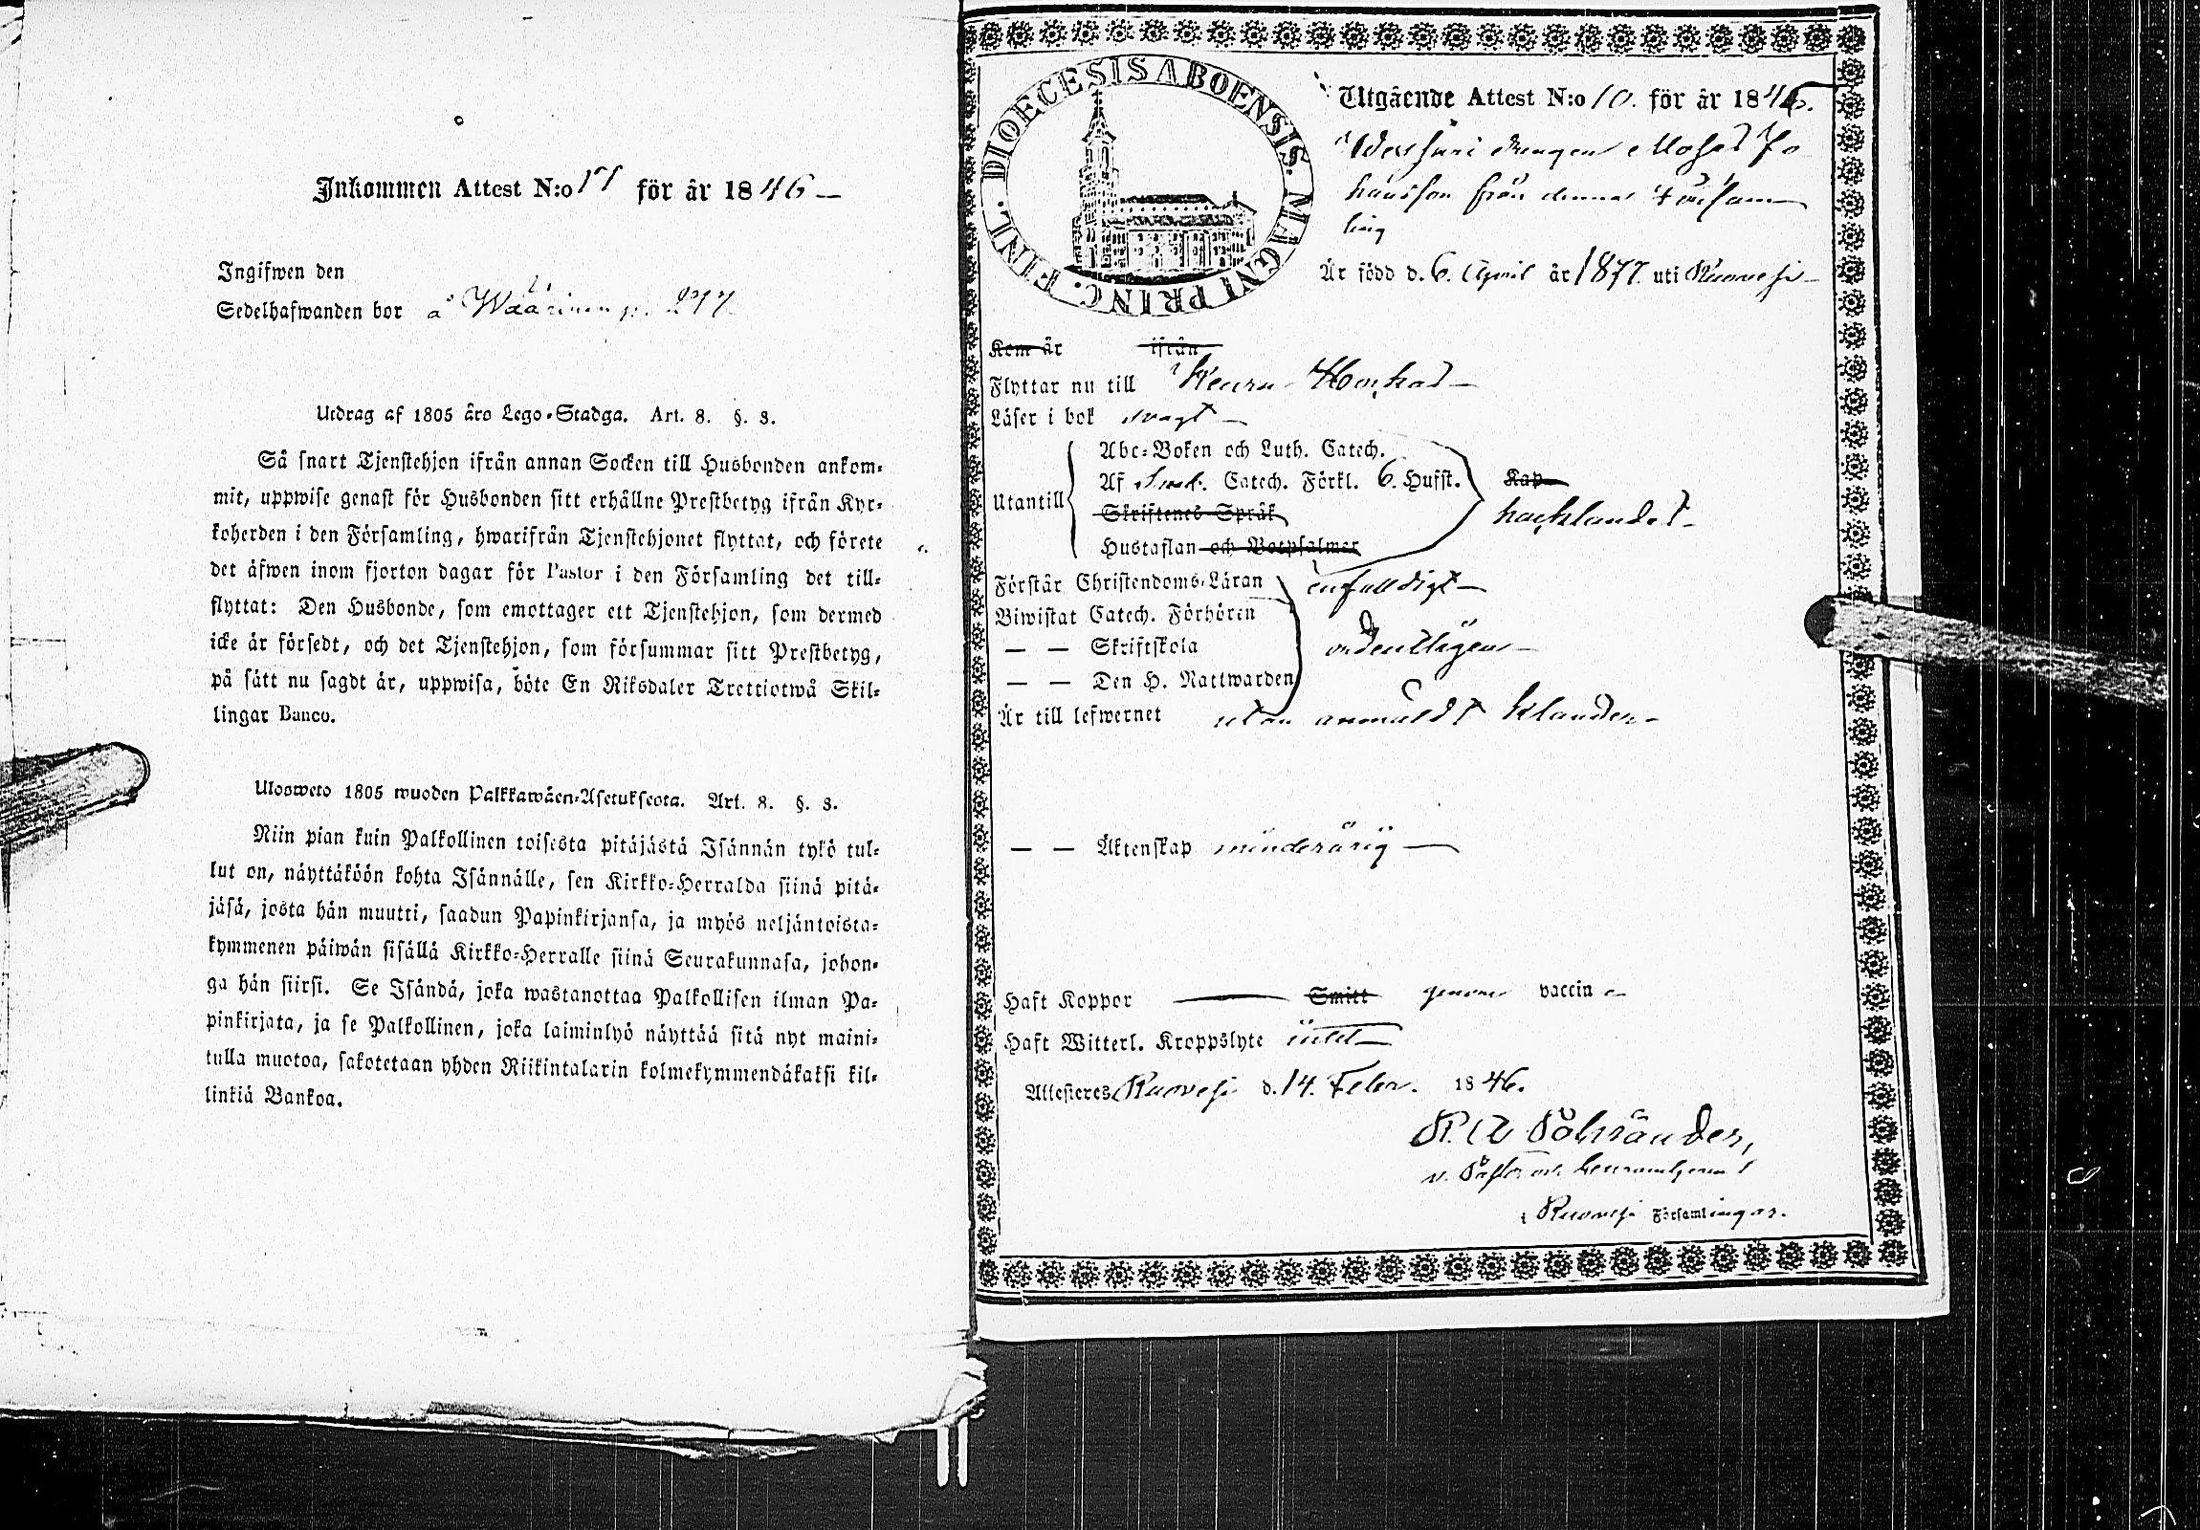 Inkommen Attest N:o 17 för år 1846 —
Ingifwen den
Sedelhafwanden bor å Wäärinen p. 277
Utdrag af 1805 års Lego-Stadga. Art. 8. §. 3.
Så snart Tjenstehjon ifrån annan Socken till Husbonden ankom-
mit, uppwise genast för Husbonden sitt erhållne Prestbetyg ifrån Kyr-
koherden i den Församling, hwarifrån Tjenstehjonet flyttat, och förete
det äfwen inom fjorton dagar för Pastor i den Församling det till-
flyttat: Den Husbonde, som emottager ett Tjenstehjon, som dermed
icke är försedt, och det Tjenstehjon, som försummar sitt Prestbetyg,
på sätt nu sagdt är, uppwisa, böte En Riksdaler Trettiotwå Skil-
lingar Banco.
Ulosweto 1805 wuoden Palkkawäen-Asetuksesta. Art. 8. §. 3.
Niin pian kuin Palkollinen toisesta pitäjästä Isännän tykö tul-
lut on, näyttäköön kohta Isännälle, sen Kirkko-Herralda siinä pitä-
jäsä, josta hän muutti, saadun Papinkirjansa, ja myös neljäntoista-
kymmenen päiwän sisällä Kirkko-Herralle siinä Seurakunnasa, johon-
ga hän siirsi. Se Isändä, joka wastanottaa Palkollisen ilman Pa-
pinkirjata, ja se Palkollinen, joka laiminlyö näyttää sitä nyt maini-
tulla muotoa, sakotetaan yhden Riikintalarin kolmekymmendäkaksi kil-
linkiä Bankoa.
DIOECESIS ABOENSIS. MAGNI PRINC. FINL.
Utgående Attest N:o 10. för år 1846.
drengen Moses Jo
hansson från denna Försam
ling
Är född d. 6. April år 1877. uti Ruovesi —
Kom år ifrån
Flyttar nu till Keuru
Läser i bok svagt —
Abc-Boken och Luth. Catech.
Utantill Af Catech. Förkl. 6. Hufst. Kap
Skriftenes Språk
hacklandet —
Hustaflan och Botpsalmer
Förstår Christendoms-Läran enfaldigt —
Biwistat Catech. Förhören
— — Skriftskola ordentligen —
— — Den H. Nattwarden
Är till lefwernet utan anmäldt klander —
— — Äktenskap minderårig —
Haft Koppor — Smitt genom vaccin
Haft Witterl. Kroppslyte intet —
Attesteras Ruovesi d. 14. Febr. 1846.
v. Pastor
i Ruovesi Församlingar.